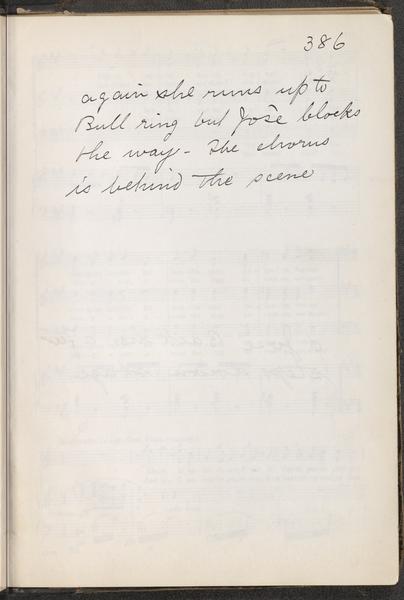 386
again she runs up to
Bull ring but José blocks
the way - The chorus
is behind the scene